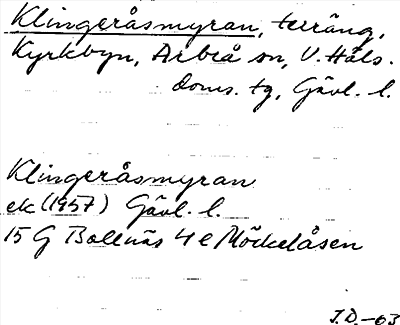 Klingeråsmyran, terräng,
Kyrkbyn, Arbrå sn, V. Häls.
doms. tg, Gävl. l.
Klingeråsmyran
ek (1957) Gävl. l.
15 G Bollnäs 4 e Möckelåsen
J.D.-63